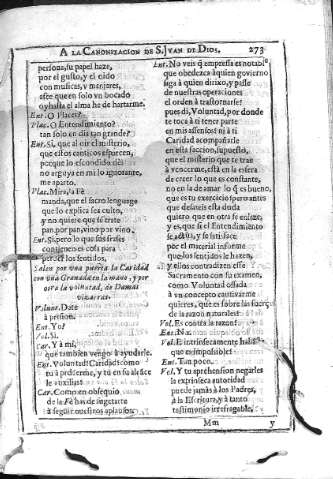 A LA CANONIZACION DE S. JVAN DE DIOS. 273
persona, su papel haze,
por el gusto, y el oido
con musicas, y manjares,
este que en solo vn bocado
oy hasta el alma he de hartarme.
Ent. O Placer?
Plac. O Entendimiento?
tan solo en dia tan grande?
Ent. Si, que al oir el misterio,
que estos canticos esparcen,
porque lo escondido dèl
no arguya en mi lo ignorante,
me aparto.
Plac. Mira, la Fè
manda, que el sacro lenguage
que lo explica sea culto,
y no quiere que se trate
pan por pan, vino por vino.
Ent. Si, pero lo que sus frases
contienen es cosa para
perder los sentidos.
Salen por una puerta la Caridad
con una Granada en la mano, y por
otra la voluntad, de Damas
Volunt. Date
à prision.
Ent. Yo?
Vol. Si.
Car. Y à mi,
que tambien vengo à ayudarle.
Ent. Voluntad! Caridad! como
tu à prenderme, y tu en su alcance
le auxilias?
Car. Como en obsequio
de la Fè has de sugetarte
à seguir nuestros aplausos.
Ent. No veis que empressa es notable
que obedezca à quien govierno
siga à quien dirixo, y passe
de nuestras operaciones
el orden à trastornarse?
pues di, Voluntad, por donde
te toca à ti tener parte
en mis assensos? ni à ti
Caridad acompañarle
en esta faccion, supuesto,
que el misterio que te trae
à vencerme, està en la esfera
de creer lo que es constante,
no en la de amar lo que es bueno,
que es tu exercicio? pero antes
que desateis esta duda
quiero que en otra se enlaze,
y es, que si el Entendimiento
se actua, y se satisface
por el material informe
que los sentidos le hazen,
y ellos contradizen esse
Sacramento con su examen,
como Voluntad ossada
à vn concepto cautivarme
quieres, que es sobre las fuerças
de la razon naturales?
Vol. Es contra la razon?
Ent. No.
Vol. E intrinsecamente hallas
que es impossible?
Ent. Tampoco.
Vol. Y tu aprehension negarles
la extrinseca autoridad
puede jamàs à los Padres,
à la Escritura, y à tanto
testimonio irrefragable.
Mm y